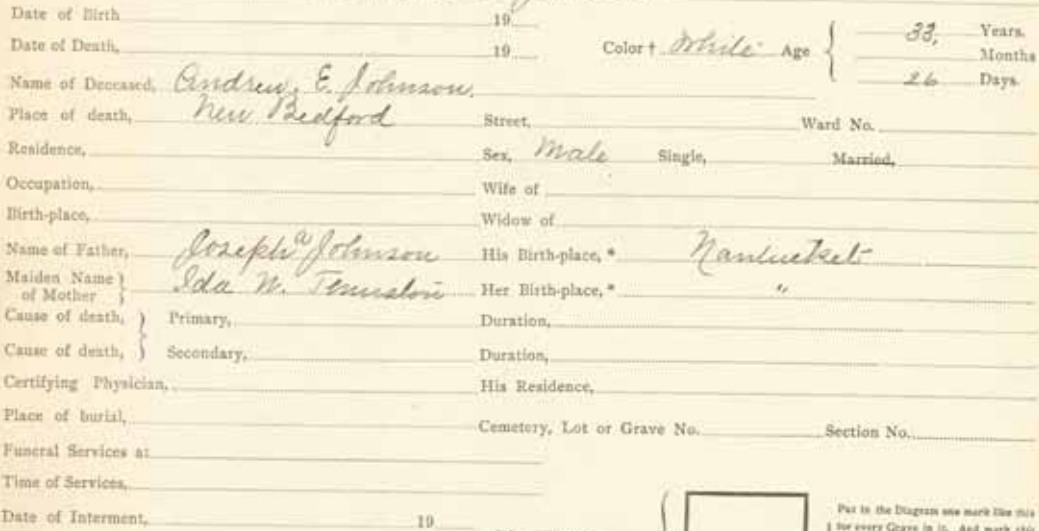 Date of Birth 19
Date of Death, 19 Color † White Age { 33, Years.
Months
26 Days.
Name of Deceased, Andrew E. Johnson.
Place of death, New Bedford Street, Ward No.
Residence, Sex, Male Single, Married,
Occupation, Wife of
Birth-place, Widow of
Name of Father, Joseph a Johnson His Birth-place, * Nantucket
Maiden Name of Mother } Ida W. Her Birth-place, * "
Cause of death, } Primary, Duration,
Cause of death, } Secondary, Duration,
Certifying Physician, His Residence,
Place of burial, Cemetery, Lot or Grave No. Section No.
Funeral Services at
Time of Services,
Date of Interment, 19
Put in the Diagram one mark like this
1 for every Grave in it. And mark this